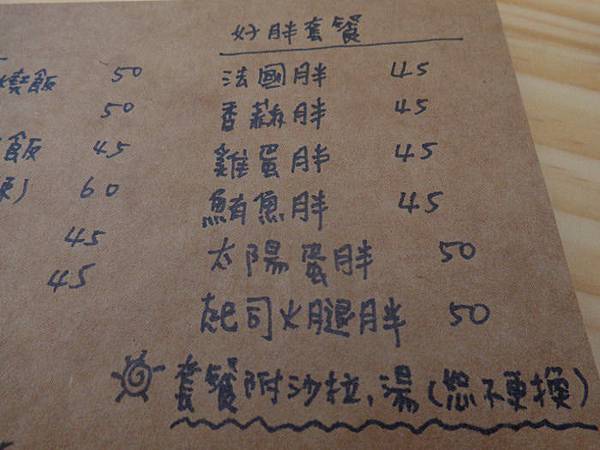 好胖套餐
法國胖 45
香蒜胖 45
雞蛋胖 45
鮪魚胖 45
太陽蛋胖 50
起司火腿胖 50
套餐附沙拉,湯(恕不更換)
燴飯 50
50
飯 45
60
45
45